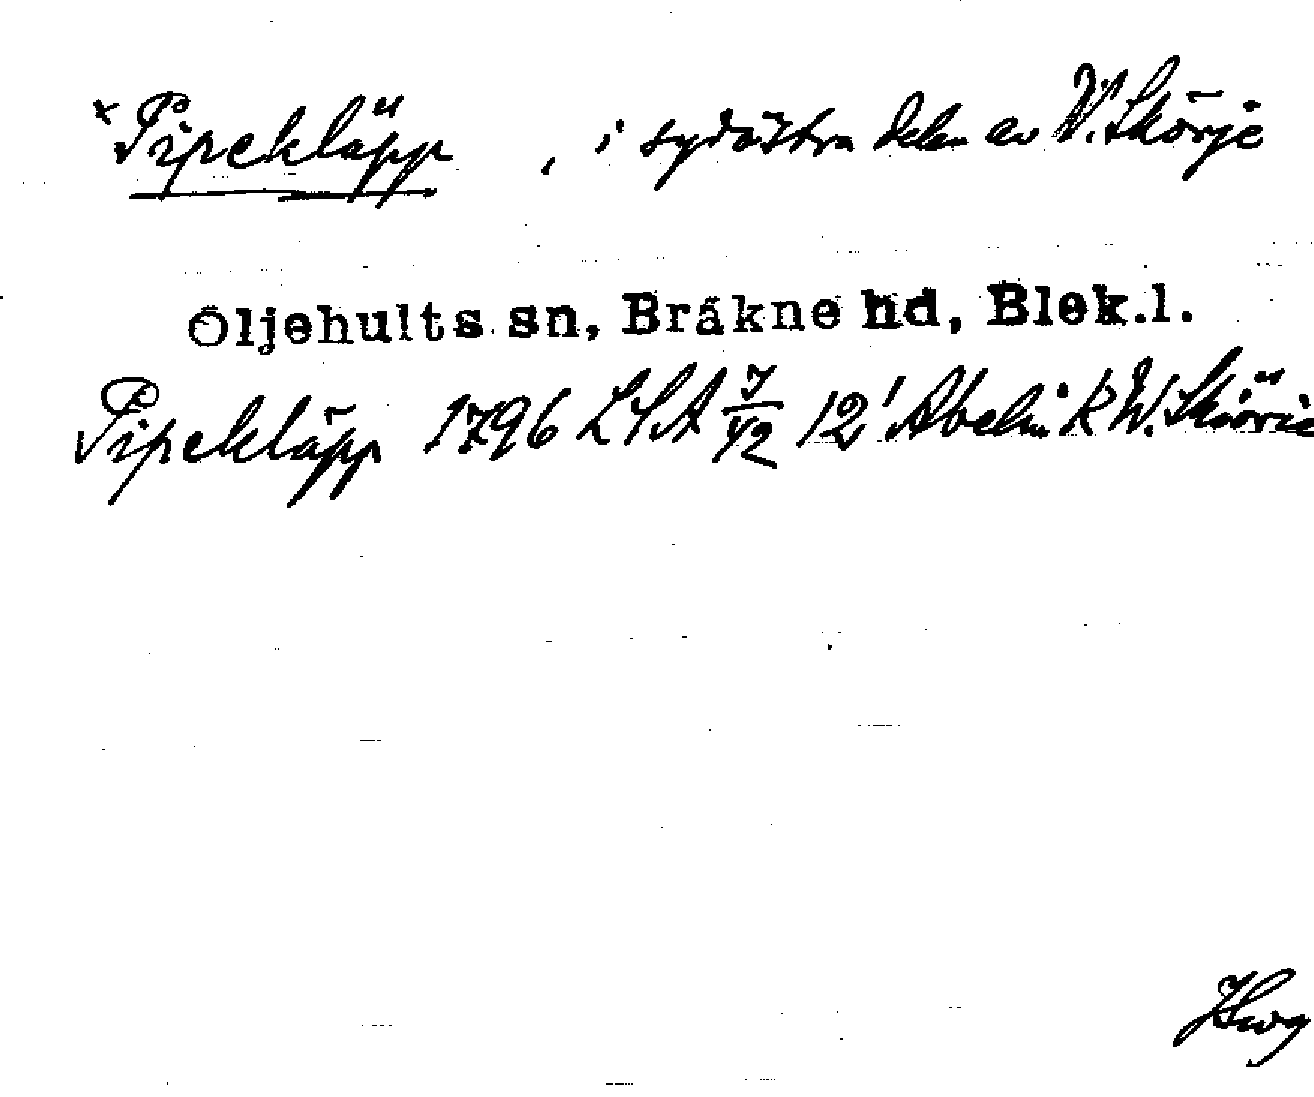 × Pipekläpp, i sydöstra delen av V. Skörje
Öljehults sn, Bräkne hd, Blek.l.
Pipekläpp 1796 LSA J/42 12' Abeln i K W. Skörie